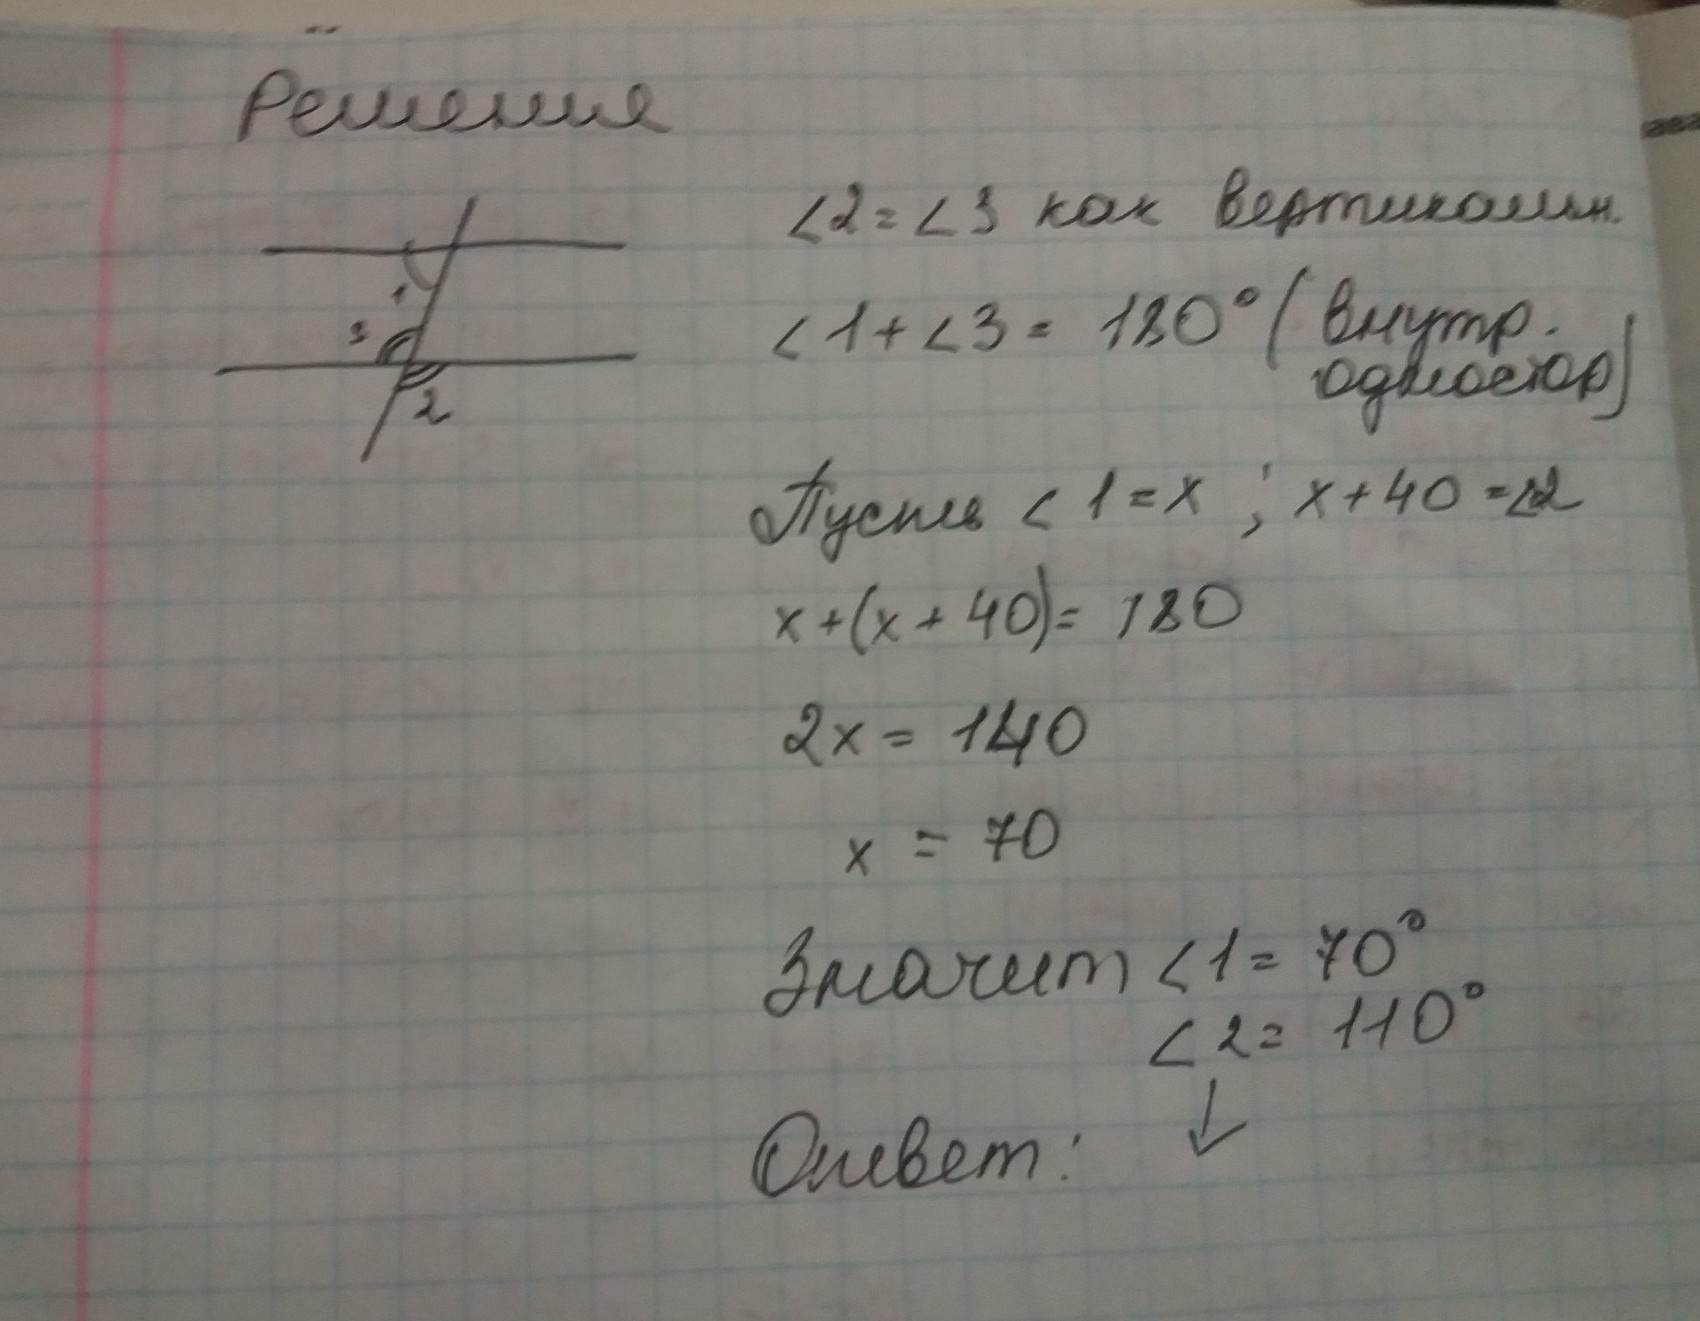 Решение
∠2=∠3 как вертикальн.
∠1+∠3= 180° (внутр.
одностор)
1
3
2
Пусть ∠1=x ; x+40=∠2
x+(x+40)= 180
2x= 140
x = 70
Значит ∠1= 70°
∠2= 110°
Ответ: ↓